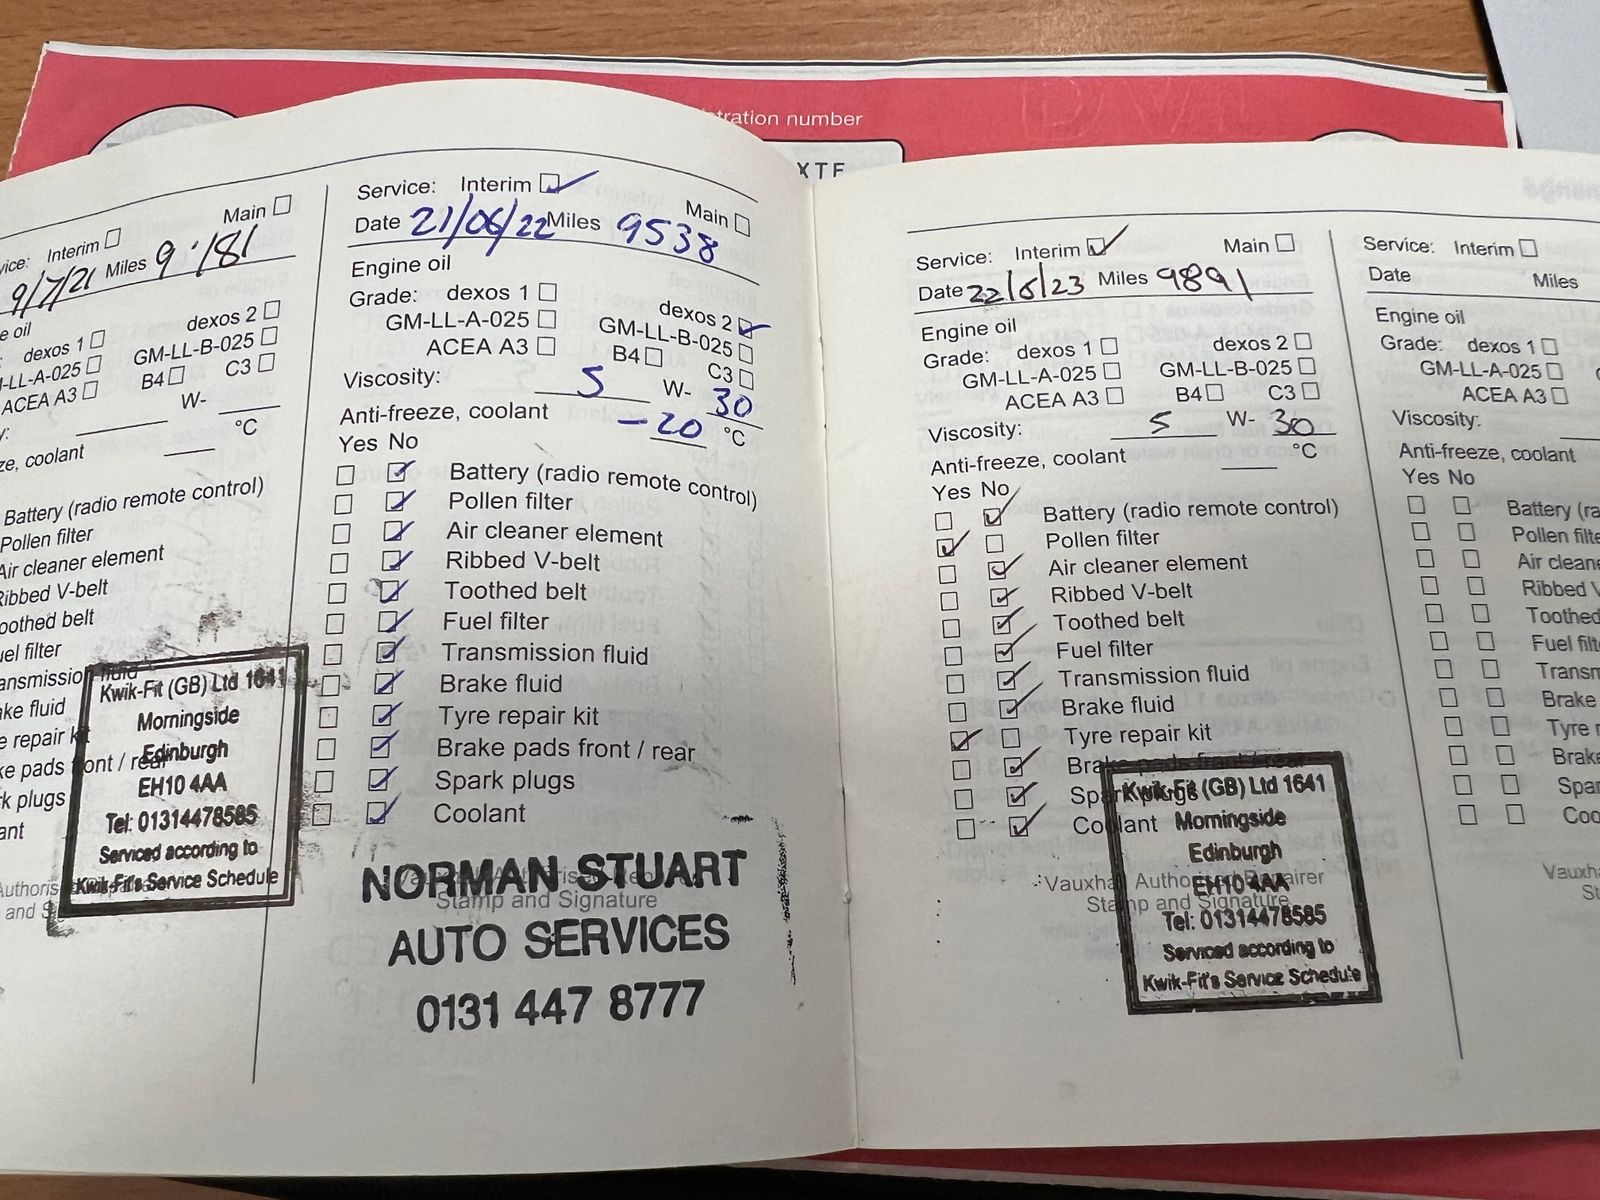 tration number
XTE
Main
Interim
9/7/21 Miles 9181
e oil
dexos 1 dexos 2
-LL-A-025 GM-LL-B-025
ACEA A3 B4 C3
W-
°C
ze, coolant
Battery (radio remote control)
Pollen filter
Air cleaner element
Ribbed V-belt
oothed belt
uel filter
ansmission fluid
ake fluid
e repair kit
ke pads front / rear
rk plugs
ant
Authoris
and S
Kwik-Fit (GB) Ltd 1641
Morningside
Edinburgh
EH10 4AA
Tel: 01314478585
Serviced according to
Kwik-Fit's Service Schedule
Service: Interim Main
Date 21/06/22 Miles 9538
Engine oil
Grade: dexos 1 dexos 2
GM-LL-A-025 GM-LL-B-025
ACEA A3 B4 C3
Viscosity: 5 W- 30
Anti-freeze, coolant -20 °C
Yes No
Battery (radio remote control)
Pollen filter
Air cleaner element
Ribbed V-belt
Toothed belt
Fuel filter
Transmission fluid
Brake fluid
Tyre repair kit
Brake pads front / rear
Spark plugs
Coolant
Vauxhall Authorised Repairer
Stamp and Signature
NORMAN STUART
AUTO SERVICES
0131 447 8777
Service: Interim Main
Date 22/5/23 Miles 9891
Engine oil
Grade: dexos 1 dexos 2
GM-LL-A-025 GM-LL-B-025
ACEA A3 B4 C3
Viscosity: 5 W- 30
Anti-freeze, coolant °C
Yes No
Battery (radio remote control)
Pollen filter
Air cleaner element
Ribbed V-belt
Toothed belt
Fuel filter
Transmission fluid
Brake fluid
Tyre repair kit
Brake pads front / rear
Spark plugs
Coolant
Vauxhall Authorised Repairer
Stamp and Signature
Kwik-Fit (GB) Ltd 1641
Morningside
Edinburgh
EH10 4AA
Tel: 01314478585
Serviced according to
Kwik-Fit's Service Schedule
Service: Interim
Date Miles
Engine oil
Grade: dexos 1
GM-LL-A-025
ACEA A3
Viscosity:
Anti-freeze, coolant
Yes No
Battery (ra
Pollen filte
Air cleane
Ribbed V
Toothed
Fuel filt
Transm
Brake
Tyre r
Brake
Spar
Coo
Vauxha
St